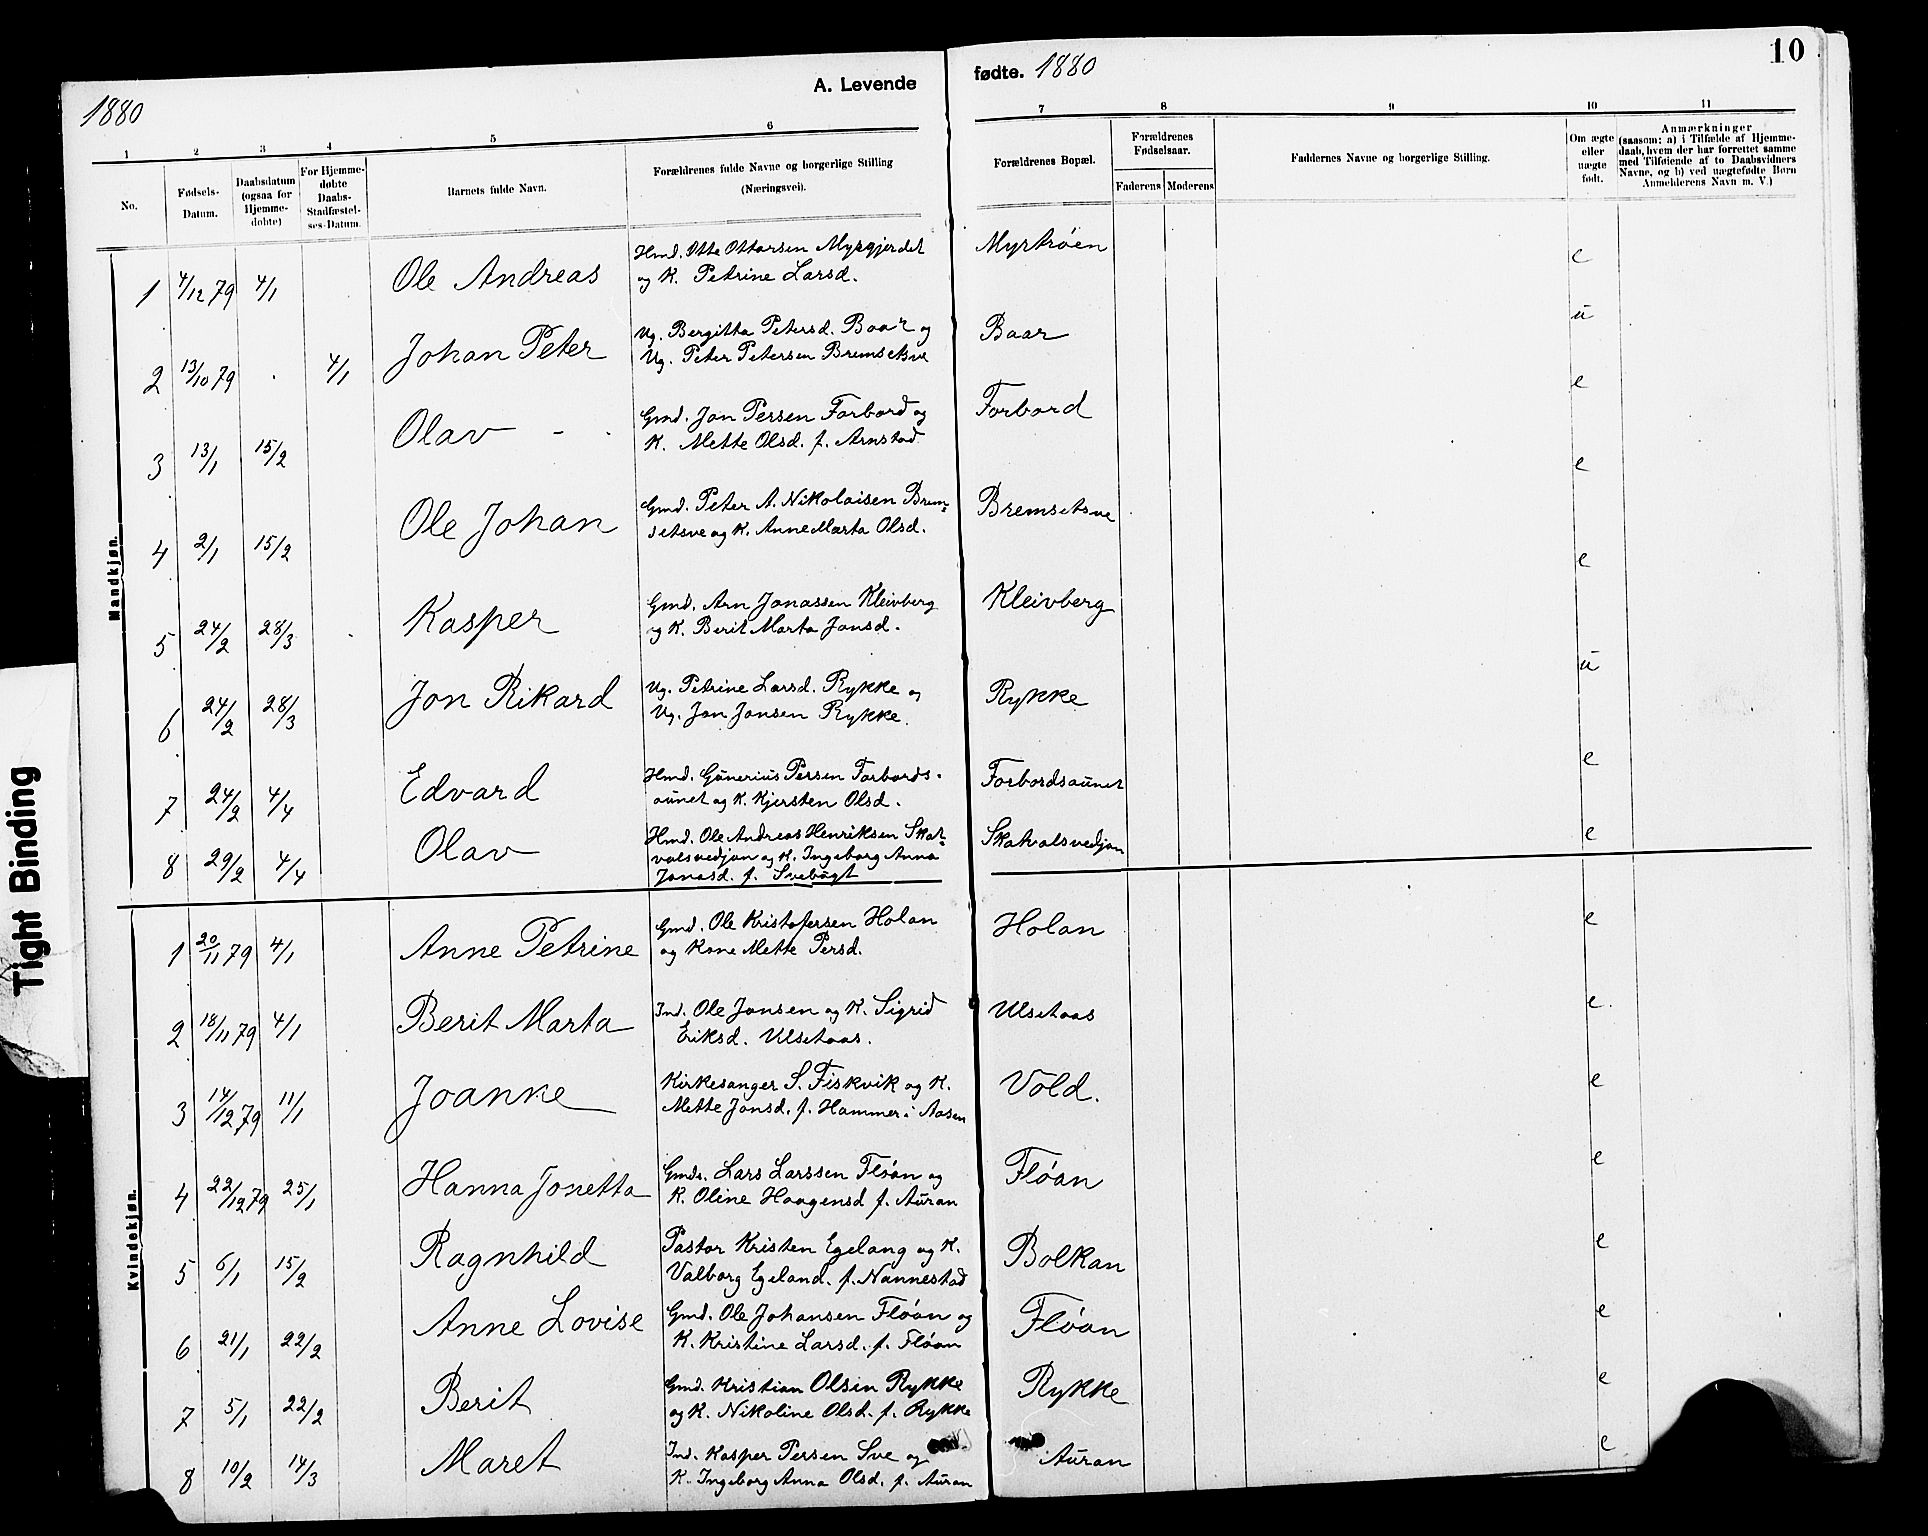 10
1880
A. Levende
fødte. 1880
1 2 3 4 5 6 7 8 9 10 11
No.
Fødsels-
Datum.
Daabsdatum
(ogsaa for
Hjemme-
døbte)
For Hjemme-
døbte
Daabs-
Stadfæstel-
ses-Datum.
Barnets fulde Navn.
Forældrenes fulde Navne og borgerlige Stilling
(Næringsvei).
Forældrenes Bopæl.
Forældrenes
Fødselsaar.
Faderens Moderens
Faddernes Navne og borgerlige Stilling.
Om ægte
eller
uægte
født.
Anmærkninger
(saasom: a) i Tilfælde af Hjemme-
daab, hvem der har forrettet samme
med Tilføiende af to Daabsvidners
Navne, og b) ved uægtefødte Børn
Anmelderens Navn m. V.)
Mandkjøn.
1 4/12 79 4/1 Ole Andreas Hmd. Otte Ottarsen Myrgjerdet Myrtrøen e
og K. Petrine Larsd.
2 13/10 79 . 4/1 Johan Peter Ug. Bergitta Petersd. Baar og Baar ŭ
Ug. Peter Petersen Bremsetsve
3 13/1 15/2 Olav Gmd. Jon Persen Forbord og Forbord e
K. Mette Olsd. f. Arnstad
4 2/1 15/2 Ole Johan Gmd. Peter A. Nikolaisen Brem= Bremsetsve e
setsve og K. Anne Marta Olsd.
5 24/2 28/3 Kasper Gmd. Arn Jonassen Kleivberg Kleivberg e
og K. Berit Marta Jonsd.
6 24/2 28/3 Jon Rikard Ug. Petrine Larsd. Rykke og Rykke ŭ
Ug. Jon Jonsen Rykke.
7 24/2 4/4 Edvard Hmd. Gŭnerius Persen Forbords- Forbordsaŭnet e
aŭnet og K. Kjersten Olsd.
8 29/2 4/4 Olav Hmd. Ole Andreas Henriksen Skat= Skatvalsvedjan e
valsvedjan og K. Ingeborg Anna
Jonasd. f. Svebŭgt
Kvindekjøn.
1 20/11 79 4/1 Anne Petrine Gmd. Ole Kristofersen Holan Holan e
og Kone Mette Persd.
2 18/11 79 4/1 Berit Marta Ind. Ole Jonsen og K. Sigrid Ulsetaas e.
Eriksd. Ulsetaas.
3 14/12 79 11/1 Joanne Kirkesanger S. Fiskvik og K. Vold. e
Mette Jonsd. f. Hammer i Aasen
4 22/12 79 25/1 Hanna Jonetta Gmds. Lars Larssen Fløan og Fløan e
K. Oline Haagensd f. Aŭran
5 6/1 15/2 Ragnhild Pastor Kristen Egelang og K. Bolkan e
Valborg Egeland. f. Nannestad
6 21/1 22/2 Anne Lovise Gmd. Ole Johansen Fløan og Fløan e
K. Kristine Larsd. f. Fløan
7 5/1 22/2 Berit Gmd. Kristian Olsen Rykke Rykke e
og K. Nikoline Olsd. f. Rykke
8 10/2 14/3 Maret Ind. Kasper Persen Sve og Aŭran e
K. Ingeborg Anna Olsd. f. Aŭran
Tight Binding